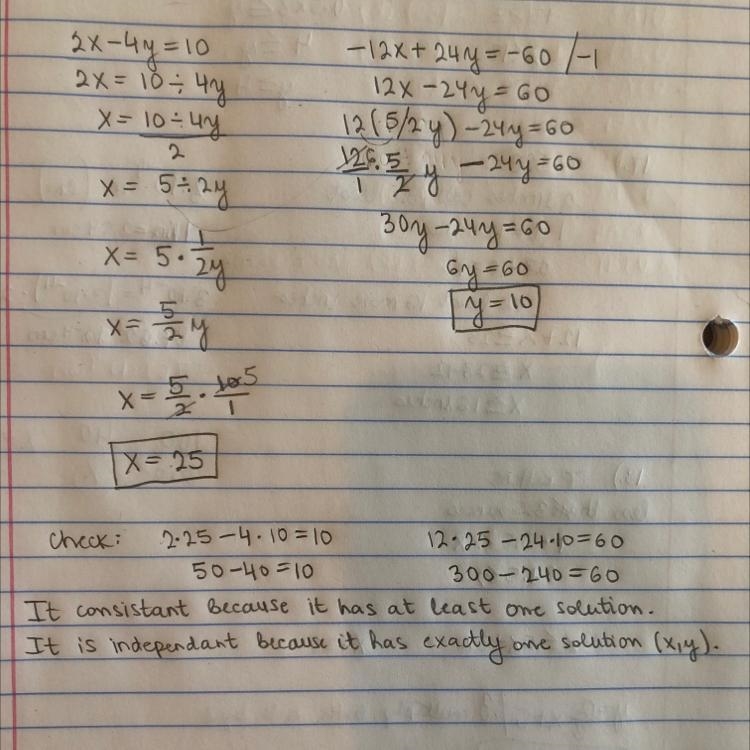 2x-4y=10
2x = 10 ÷ 4y
x = 10÷4y
2
x = 5÷2y
x = 5 · 1/2y
x = 5/2 y
x = 5/2 · 10 5/1
x = 25
-12x + 24y = -60 /-1
12x - 24y = 60
12(5/2y) - 24y = 60
12 6/1 · 5/2 y - 24y = 60
30y - 24y = 60
6y = 60
y = 10
Check: 2·25 - 4·10 = 10
50 - 40 = 10
12·25 - 24·10 = 60
300 - 240 = 60
It consistant because it has at least one solution.
It is independant because it has exactly one solution (x,y).